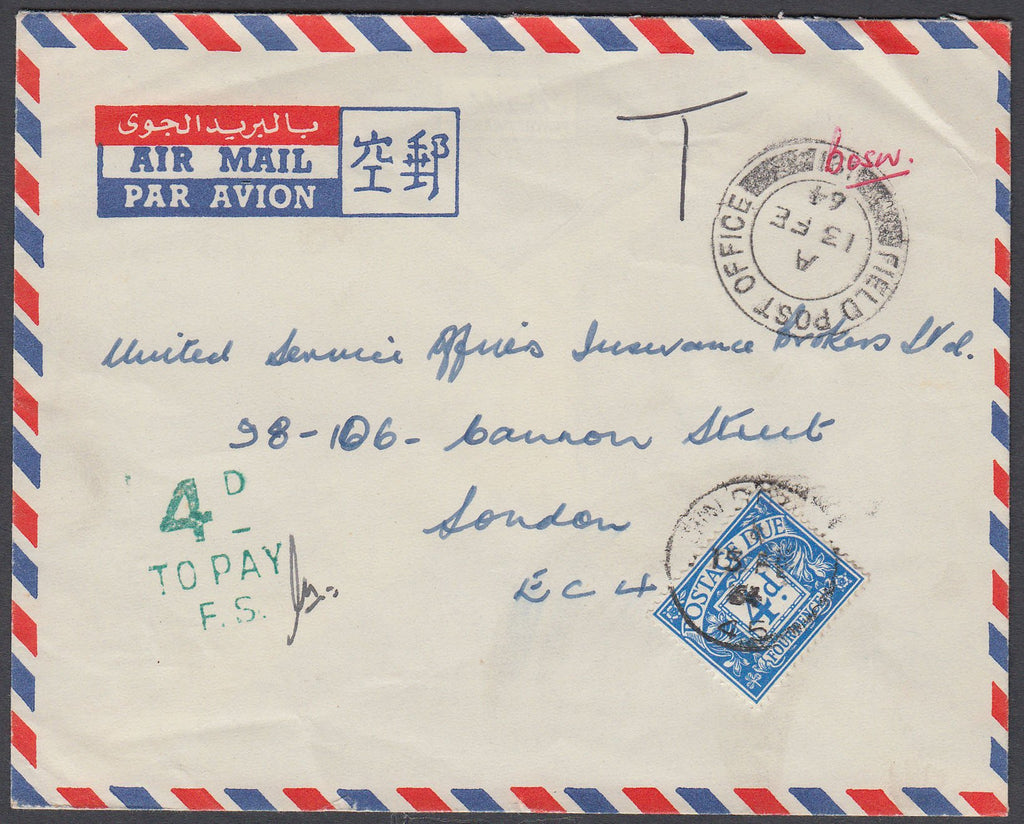 بالبريد الجوى
AIR MAIL
PAR AVION
空郵
T
bosw.
FIELD POST OFFICE
A
13 FE
64
United Service Officers Insurance Brokers Ltd.
98-106- Cannon Street
London
E C 4
4D
TO PAY
F.S.
POSTAGE DUE
4d.
FOURPENCE
45